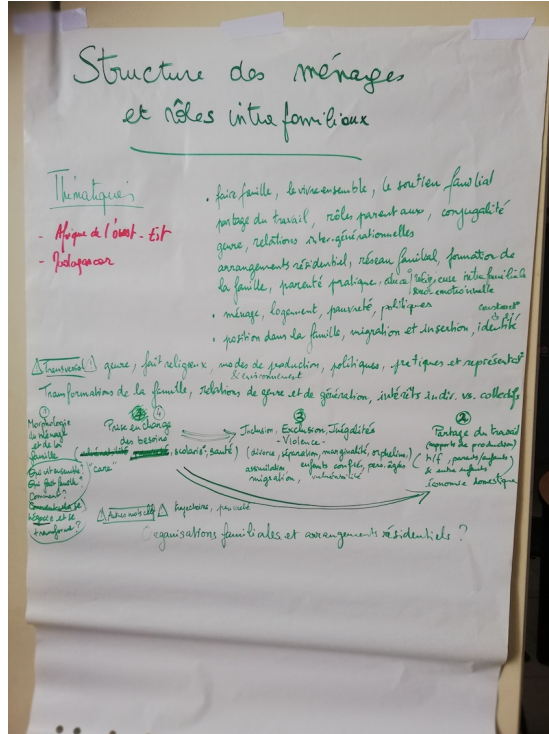 Structure des ménages
et rôles intrafamiliaux
Thématiques
- Afrique de l'ouest - Est
- Madagascar
• faire famille, le vivre ensemble, le soutien familial
partage du travail, rôles parentaux, conjugalité
genre, relations inter-générationnelles
arrangements résidentiel, réseau familial, formation de
la famille, parenté pratique, intra familiale
émotionnelle
• ménage, logement, pauvreté, politiques
• position dans la famille, migration et insertion, identité
Transversal genre, fait religieux, modes de production, politiques, pratiques et représentat°
& environnement
Transformations de la famille, relations de genre et de génération, intérêts indiv. vs. collectifs
①
Morphologie
du ménage
et de la
famille
Qui vit ensemble ?
Qui fait famille ?
Comment ?
négocie et se
transforme ?
④
Prise en charge
des besoins
scolaris°, santé)
"care"
③
Inclusion, Exclusion, Inégalités
- Violence -
(divorce, séparation, marginalité, orphelins,
assimilation, enfants confiés, pers. âgées
migration, vulnérabilité
②
Partage du travail
(rapports de production)
(H/F, parents/enfants,
& entre enfants)
économie domestique
Autres mots clef trajectoires, pauvreté
Organisations familiales et arrangements résidentiels ?